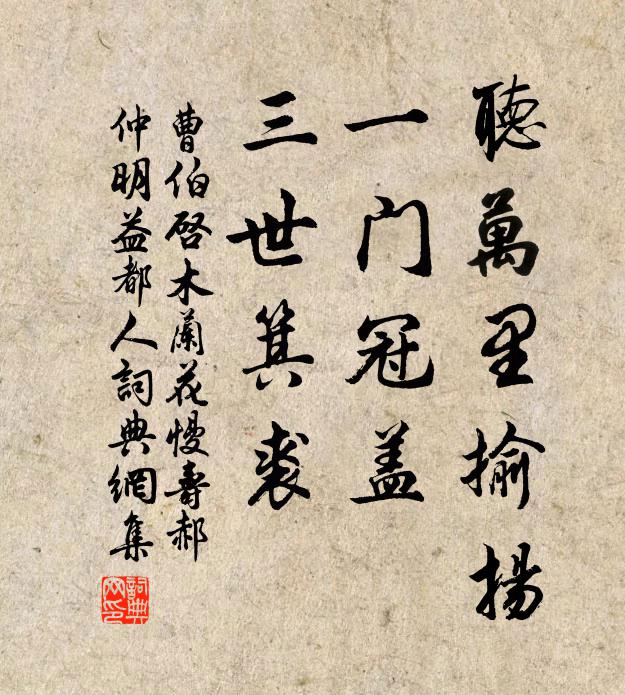 聽萬里揄揚
一门冠盖
三世箕裘
曹伯啓木蘭花慢壽郝
仲明益都人詞典網集
詞典网印